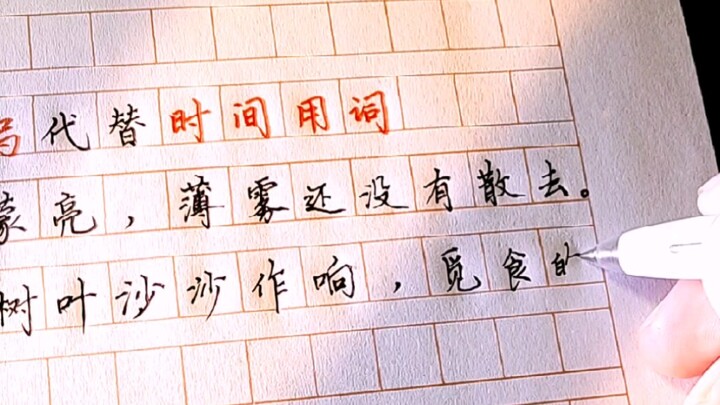 代替时间用词
蒙亮，薄雾还没有散去。
树叶沙沙作响，觅食的